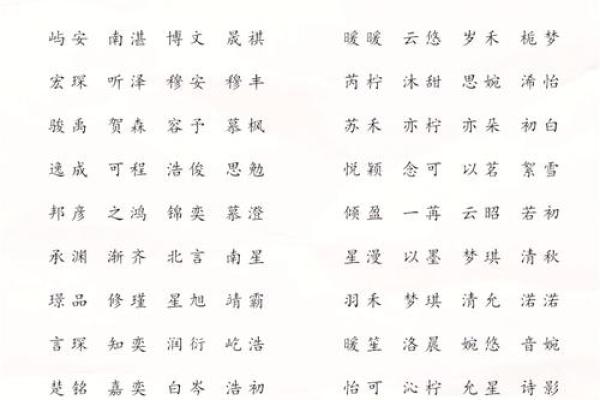 屿安 南湛 博文 晟祺 暖暖 云悠 岁禾 栀梦
宏琛 听泽 穆安 穆丰 芮柠 沐甜 思婉 浠怡
骏禹 贺森 容予 慕枫 苏禾 亦柠 亦朵 初白
逸成 可程 浩俊 思勉 悦颖 念可 以茗 絮雪
邦彦 之鸿 锦奕 慕澄 倾盈 一苒 云昭 若初
承渊 渐齐 北言 南星 星漫 以墨 梦琪 清秋
璟品 修瑾 星旭 靖霸 羽禾 梦琪 清允 渃渃
言琛 知奕 润衍 屹浩 暖笙 洛晨 婉悠 音婉
楚铭 嘉奕 白岑 浩初 怡可 沁柠 允星 诗影